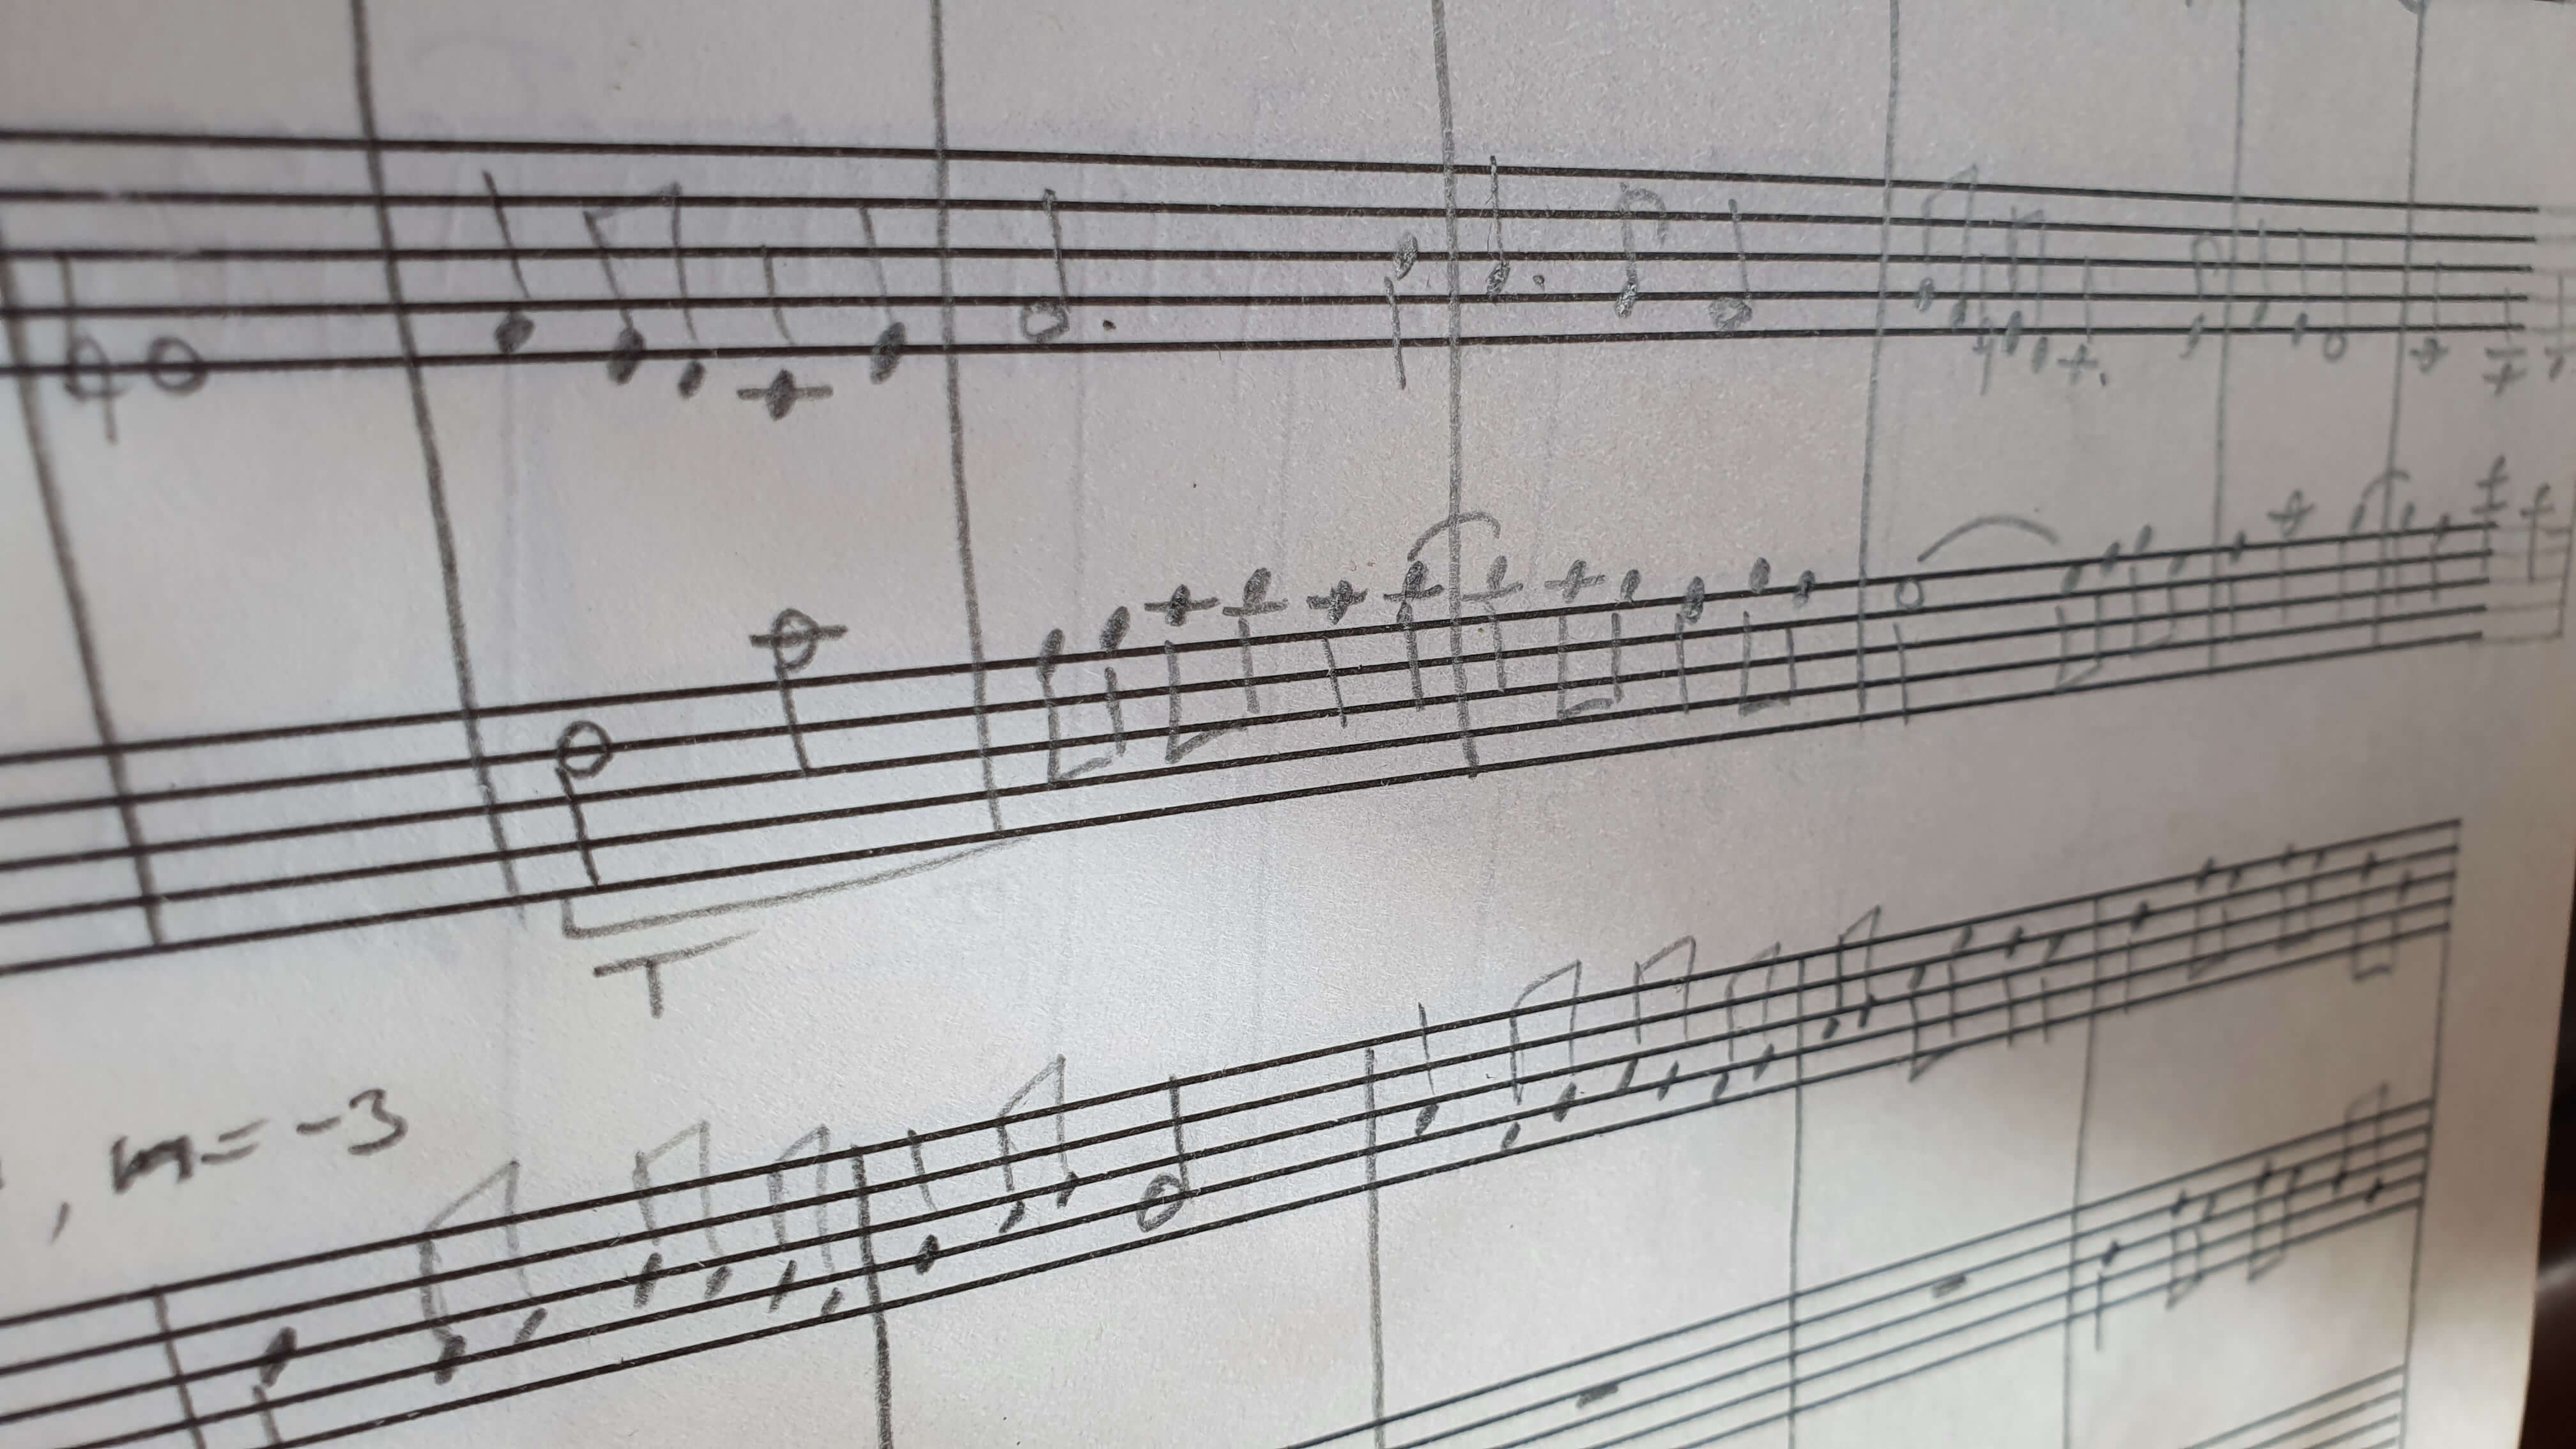 T
, m=-3